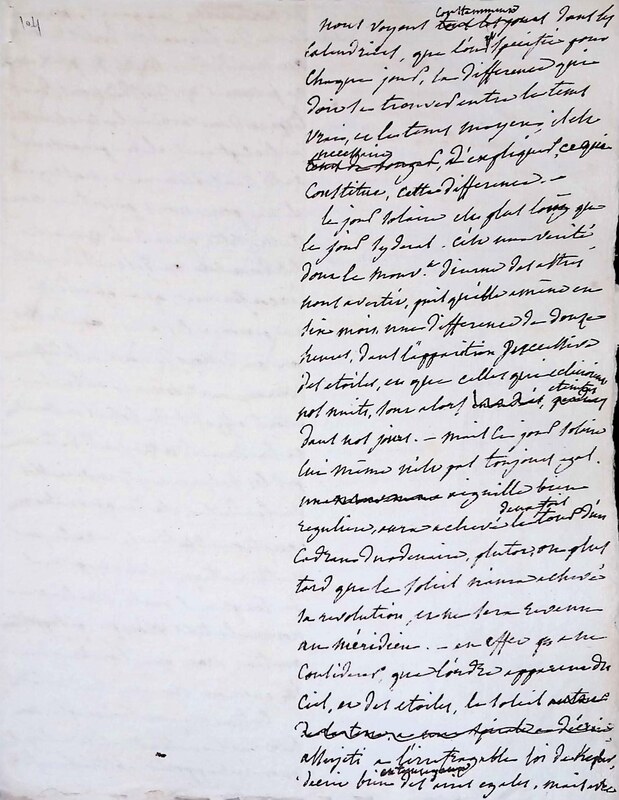 104
nous voyons constamment tous les jours dans les
Calendriers, que l'on specifie pour
Chaque jour, la difference qui
doit se trouver entre le tems
vrai, et le tems moyen; il est
necessaire d'expliquer, ce qui
Constitue, cette difference. –
le jour solaire est plus long que
le jour sydéral. c'est une verité
dont le mouv.t diurne des astres
nous avertit, puisqu'elle amène en
six mois, une difference de douze
heures, dans l'apparition successive
des etoiles, et que celles qui eclairoient
nos nuits, sont alors eteintes
dans nos jours. – mais le jour solaire
lui même n'est pas toujours egal.
une aiguille bien
reguliere, aura achevé le tour d'un
Cadran duodenaire, plutot, ou plus
tard que le soleil n'aura achevé
sa revolution, et ne sera revenu
au méridien. – en effet
Considerer, que l'ordre apparent du
Ciel, et des etoiles, le soleil
decrit
assujeti a l'irrefragable loi de Kepler,
decrit bien des aires egales, mais avec